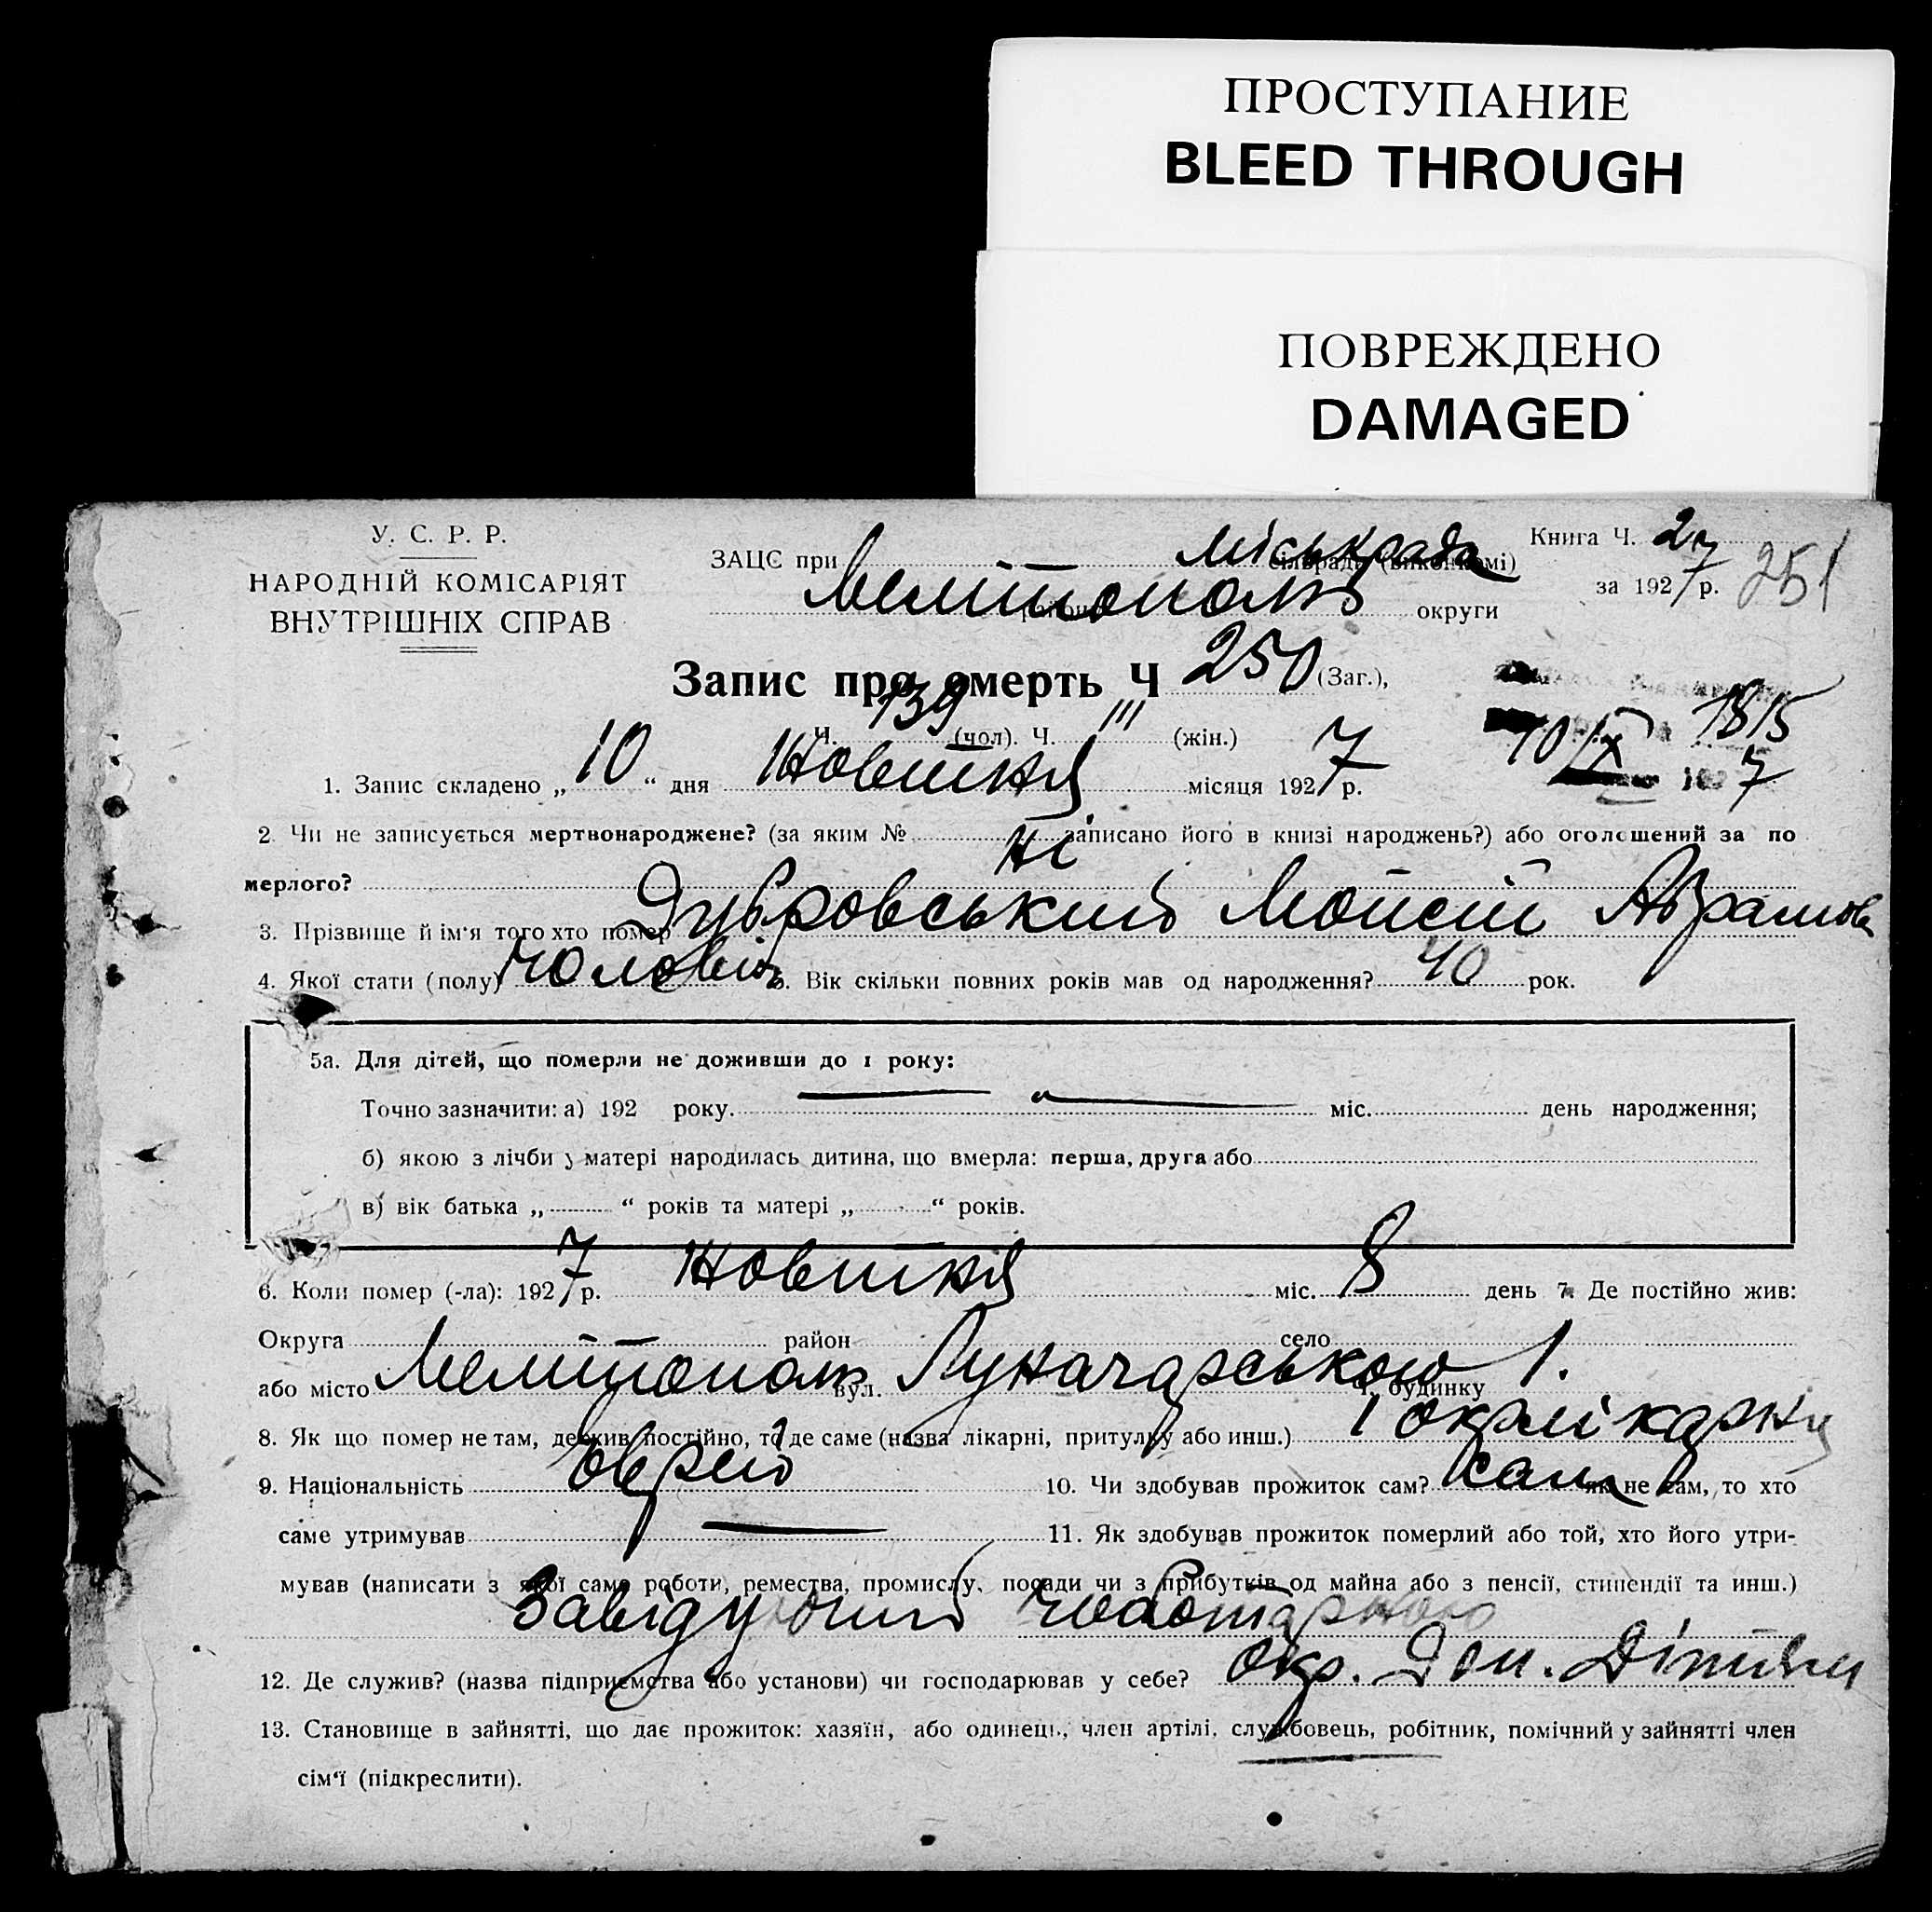 ПРОСТУПАНИЕ
BLEED THROUGH
ПОВРЕЖДЕНО
DAMAGED
У. С. Р. Р.
НАРОДНІЙ КОМІСАРІЯТ
ВНУТРІШНІХ СПРАВ
Книга Ч. 2
за 1927 р. 251
ЗАЦС при міськрада сільраді (виконкомі)
Мелітополь округи
Запис про смерть Ч 250 (Заг.),
Ч. 139 (чол). Ч. 111 (жін.)
1815
10/X 1927
1. Запис складено „ 10 “ дня Жовтня місяця 1927 р.
2. Чи не записується мертвонароджене? (за яким № записано його в книзі народжень?) або оголошений за по
мерлого? Ні
3. Прізвище й ім'я того хто помер Дубровський Мойсій Абрамов
4. Якої стати (полу) чоловік 5. Вік скільки повних років мав од народження? 40 рок.
5а. Для дітей, що померли не доживши до 1 року:
Точно зазначити: а) 192 року. міс. день народження;
б) якою з лічби у матері народилась дитина, що вмерла: перша, друга або
в) вік батька „ “ років та матері „ “ років.
6. Коли помер (-ла): 1927 р. Жовтня міс. 8 день 7. Де постійно жив:
Округа район село
або місто Мелітополь вул. Луначарською будинку 1.
8. Як що помер не там, де жив постійно, то де саме (назва лікарні, притулку або инш.) 1 окрлікарня
9. Національність Єврей 10. Чи здобував прожиток сам? сам як не сам, то хто
саме утримував 11. Як здобував прожиток померлий або той, хто його утри-
мував (написати з якої саме роботи, ремества, промислу, посади чи з прибутків од майна або з пенсії, стипендії та инш.)
Завідуючий
12. Де служив? (назва підприємства або установи) чи господарював у себе? Окр.
13. Становище в зайнятті, що дає прожиток: хазяїн, або одинець, член артілі, службовець, робітник, помічний у зайнятті член
сім'ї (підкреслити).